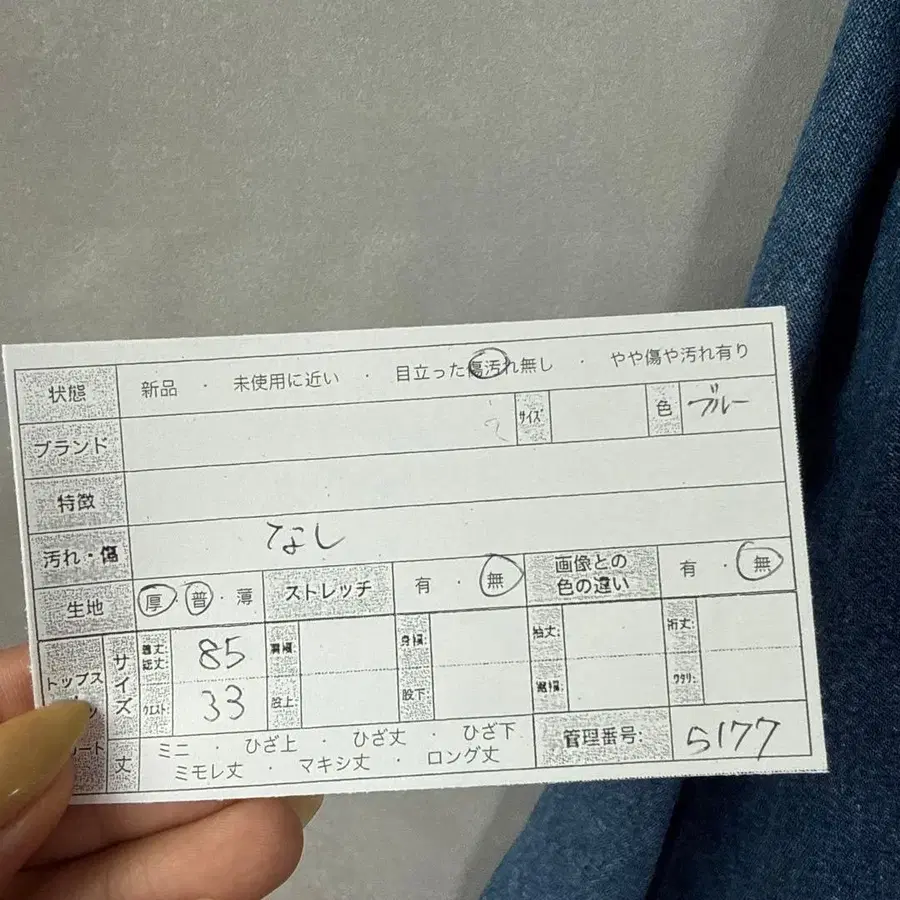 状態 新品 ・ 未使用に近い ・ 目立った傷汚れ無し ・ やや傷や汚れ有り
ブランド サイズ 色 ブルー
特徴
汚れ・傷 なし
生地 厚・普・薄 ストレッチ 有・無 画像との色の違い 有・無
トップス サイズ 着丈 総丈: 85 肩幅: 身幅: 袖丈: 裄丈:
ウエスト: 33 股上: 股下 裾幅: ワタリ:
丈 ミニ ・ ひざ上 ・ ひざ丈 ・ ひざ下 管理番号: 5177
ミモレ丈 ・ マキシ丈 ・ ロング丈